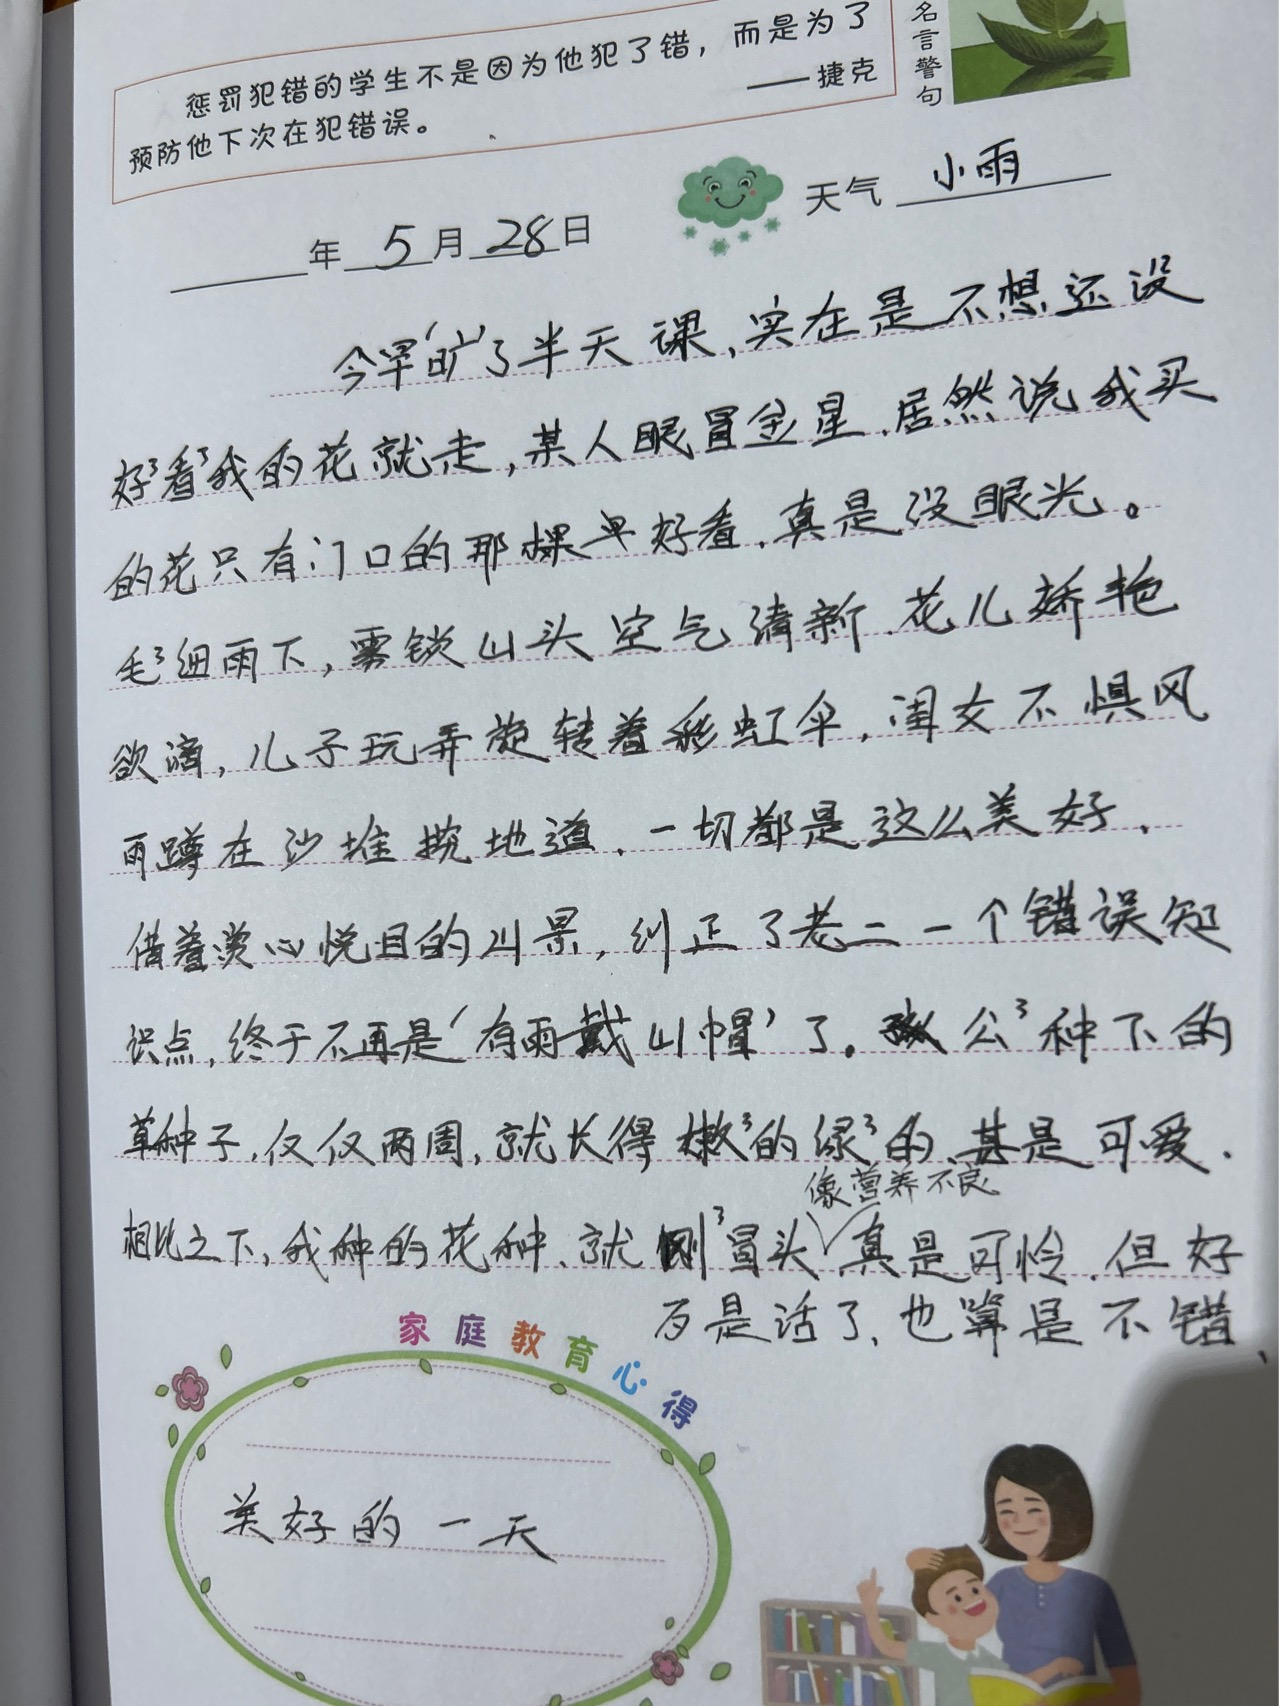 惩罚犯错的学生不是因为他犯了错，而是为了
预防他下次在犯错误。
——捷克
名言警句
年 5月28日
天气 小雨
今早“旷”了半天课，实在是不想还没
好3看3我的花就走，某人眼冒金星，居然说我买
的花只有门口的那棵早好看，真是没眼光。
毛3细雨下，雾锁山头空气清新，花儿娇艳
欲滴，儿子玩弄旋转着彩虹伞，闺女不惧风
雨蹲在沙堆挖地道，一切都是这么美好，
借着赏心悦目的山景，纠正了老二一个错误知
识点，终于不再是‘有雨戴山帽’了。公3种下的
草种子，仅仅两周，就长得嫩3的绿3的，甚是可爱，
像营养不良
相比之下，我种的花种，就刚3冒头，真是可怜，但好
歹是活了，也算是不错、
家庭教育心得
美好的一天